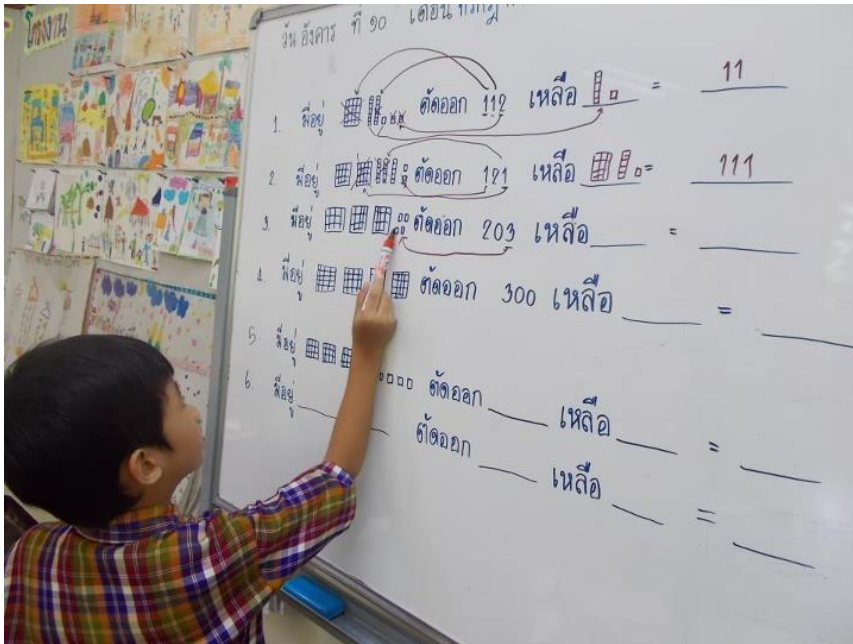 โครงงาน
วัน อังคาร ที่ ๑๐ เดือน
1. มีอยู่ ตัดออก 112 เหลือ = 11
2. มีอยู่ ตัดออก 121 เหลือ = 111
3. มีอยู่ ตัดออก 203 เหลือ ___ = ___
4. มีอยู่ ตัดออก 300 เหลือ ___ = ___
5. มีอยู่ ตัดออก ___ เหลือ ___ = ___
6. มีอยู่ ___ ตัดออก ___ เหลือ ___ = ___